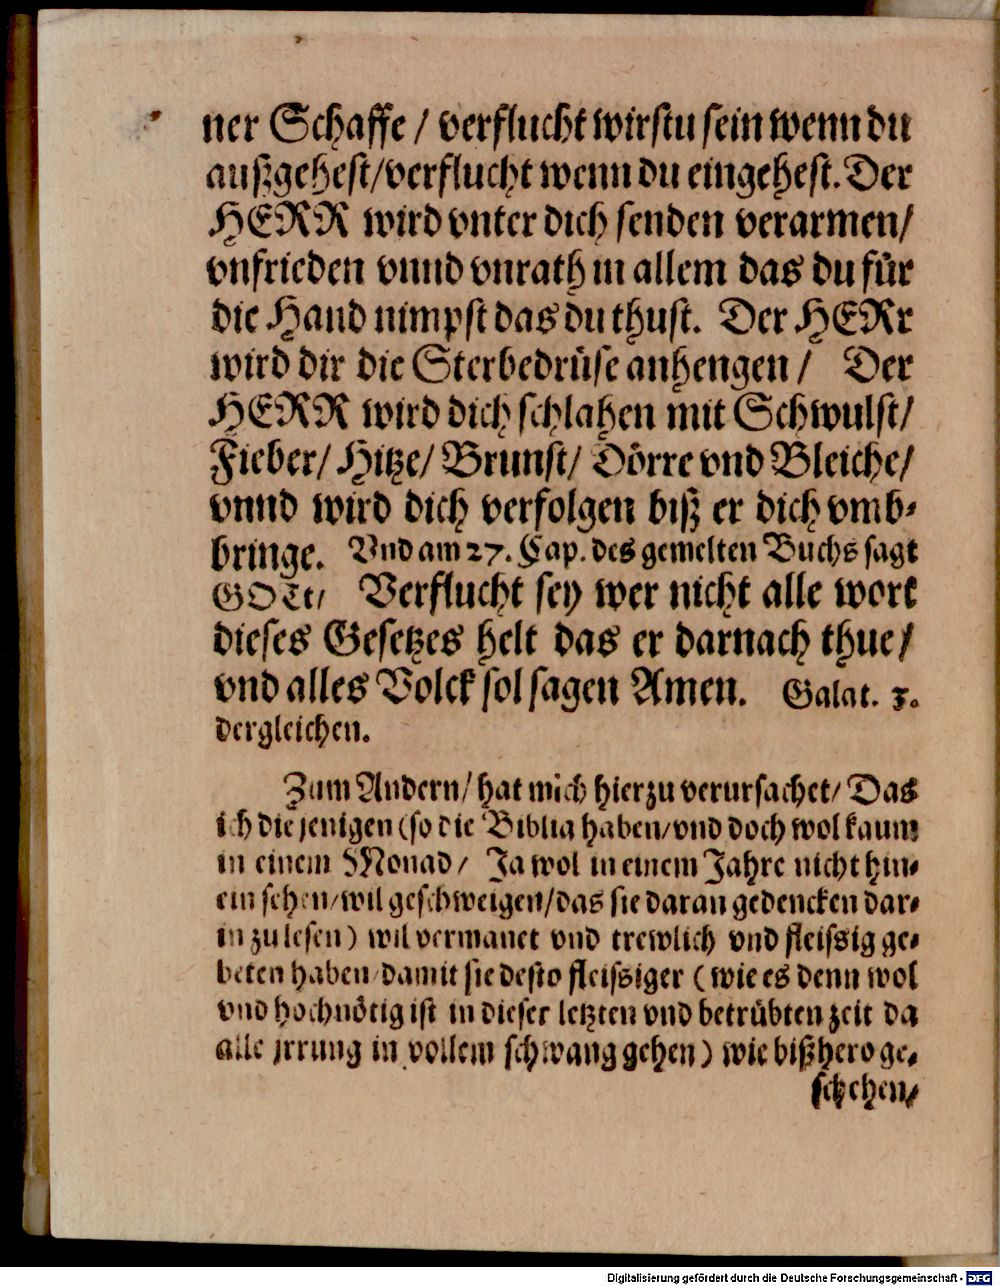 ner Schaffe / verflucht wirstu sein wenn du
außgehest/verflucht wenn du eingehest. Der
HERR wird vnter dich senden verarmen/
vnfrieden vnnd vnrath in allem das du für
die Hand nimpst das du thust. Der HERr
wird dir die Sterbedrüse anhengen / Der
HERR wird dich schlahen mit Schwulst/
Fieber/ Hitze/ Brunst/ Dörre vnd Bleiche/
vnnd wird dich verfolgen biß er dich vmb-
bringe. Vnd am 27. Cap. des gemelten Buchs sagt
GOTt/ Verflucht sey wer nicht alle wort
dieses Gesetzes helt das er darnach thue/
vnd alles Volck sol sagen Amen. Galat. 3.
dergleichen.
Zum Andern/ hat mich hierzu verursachet/ Das
ich die jenigen (so die Biblia haben/vnd doch wol kaum
in einem Monad/ Ja wol in einem Jahre nicht hin-
ein sehen/wil geschweigen/das sie daran gedencken dar-
in zu lesen) wil vermanet vnd trewlich vnd fleissig ge-
beten haben/damit sie desto fleissiger (wie es denn wol
vnd hochnötig ist in dieser letzten vnd betrübten zeit da
alle jrrung in vollem schwang gehen) wie bißhero ge-
schehen/
Digitalisierung gefördert durch die Deutsche Forschungsgemeinschaft - DFG